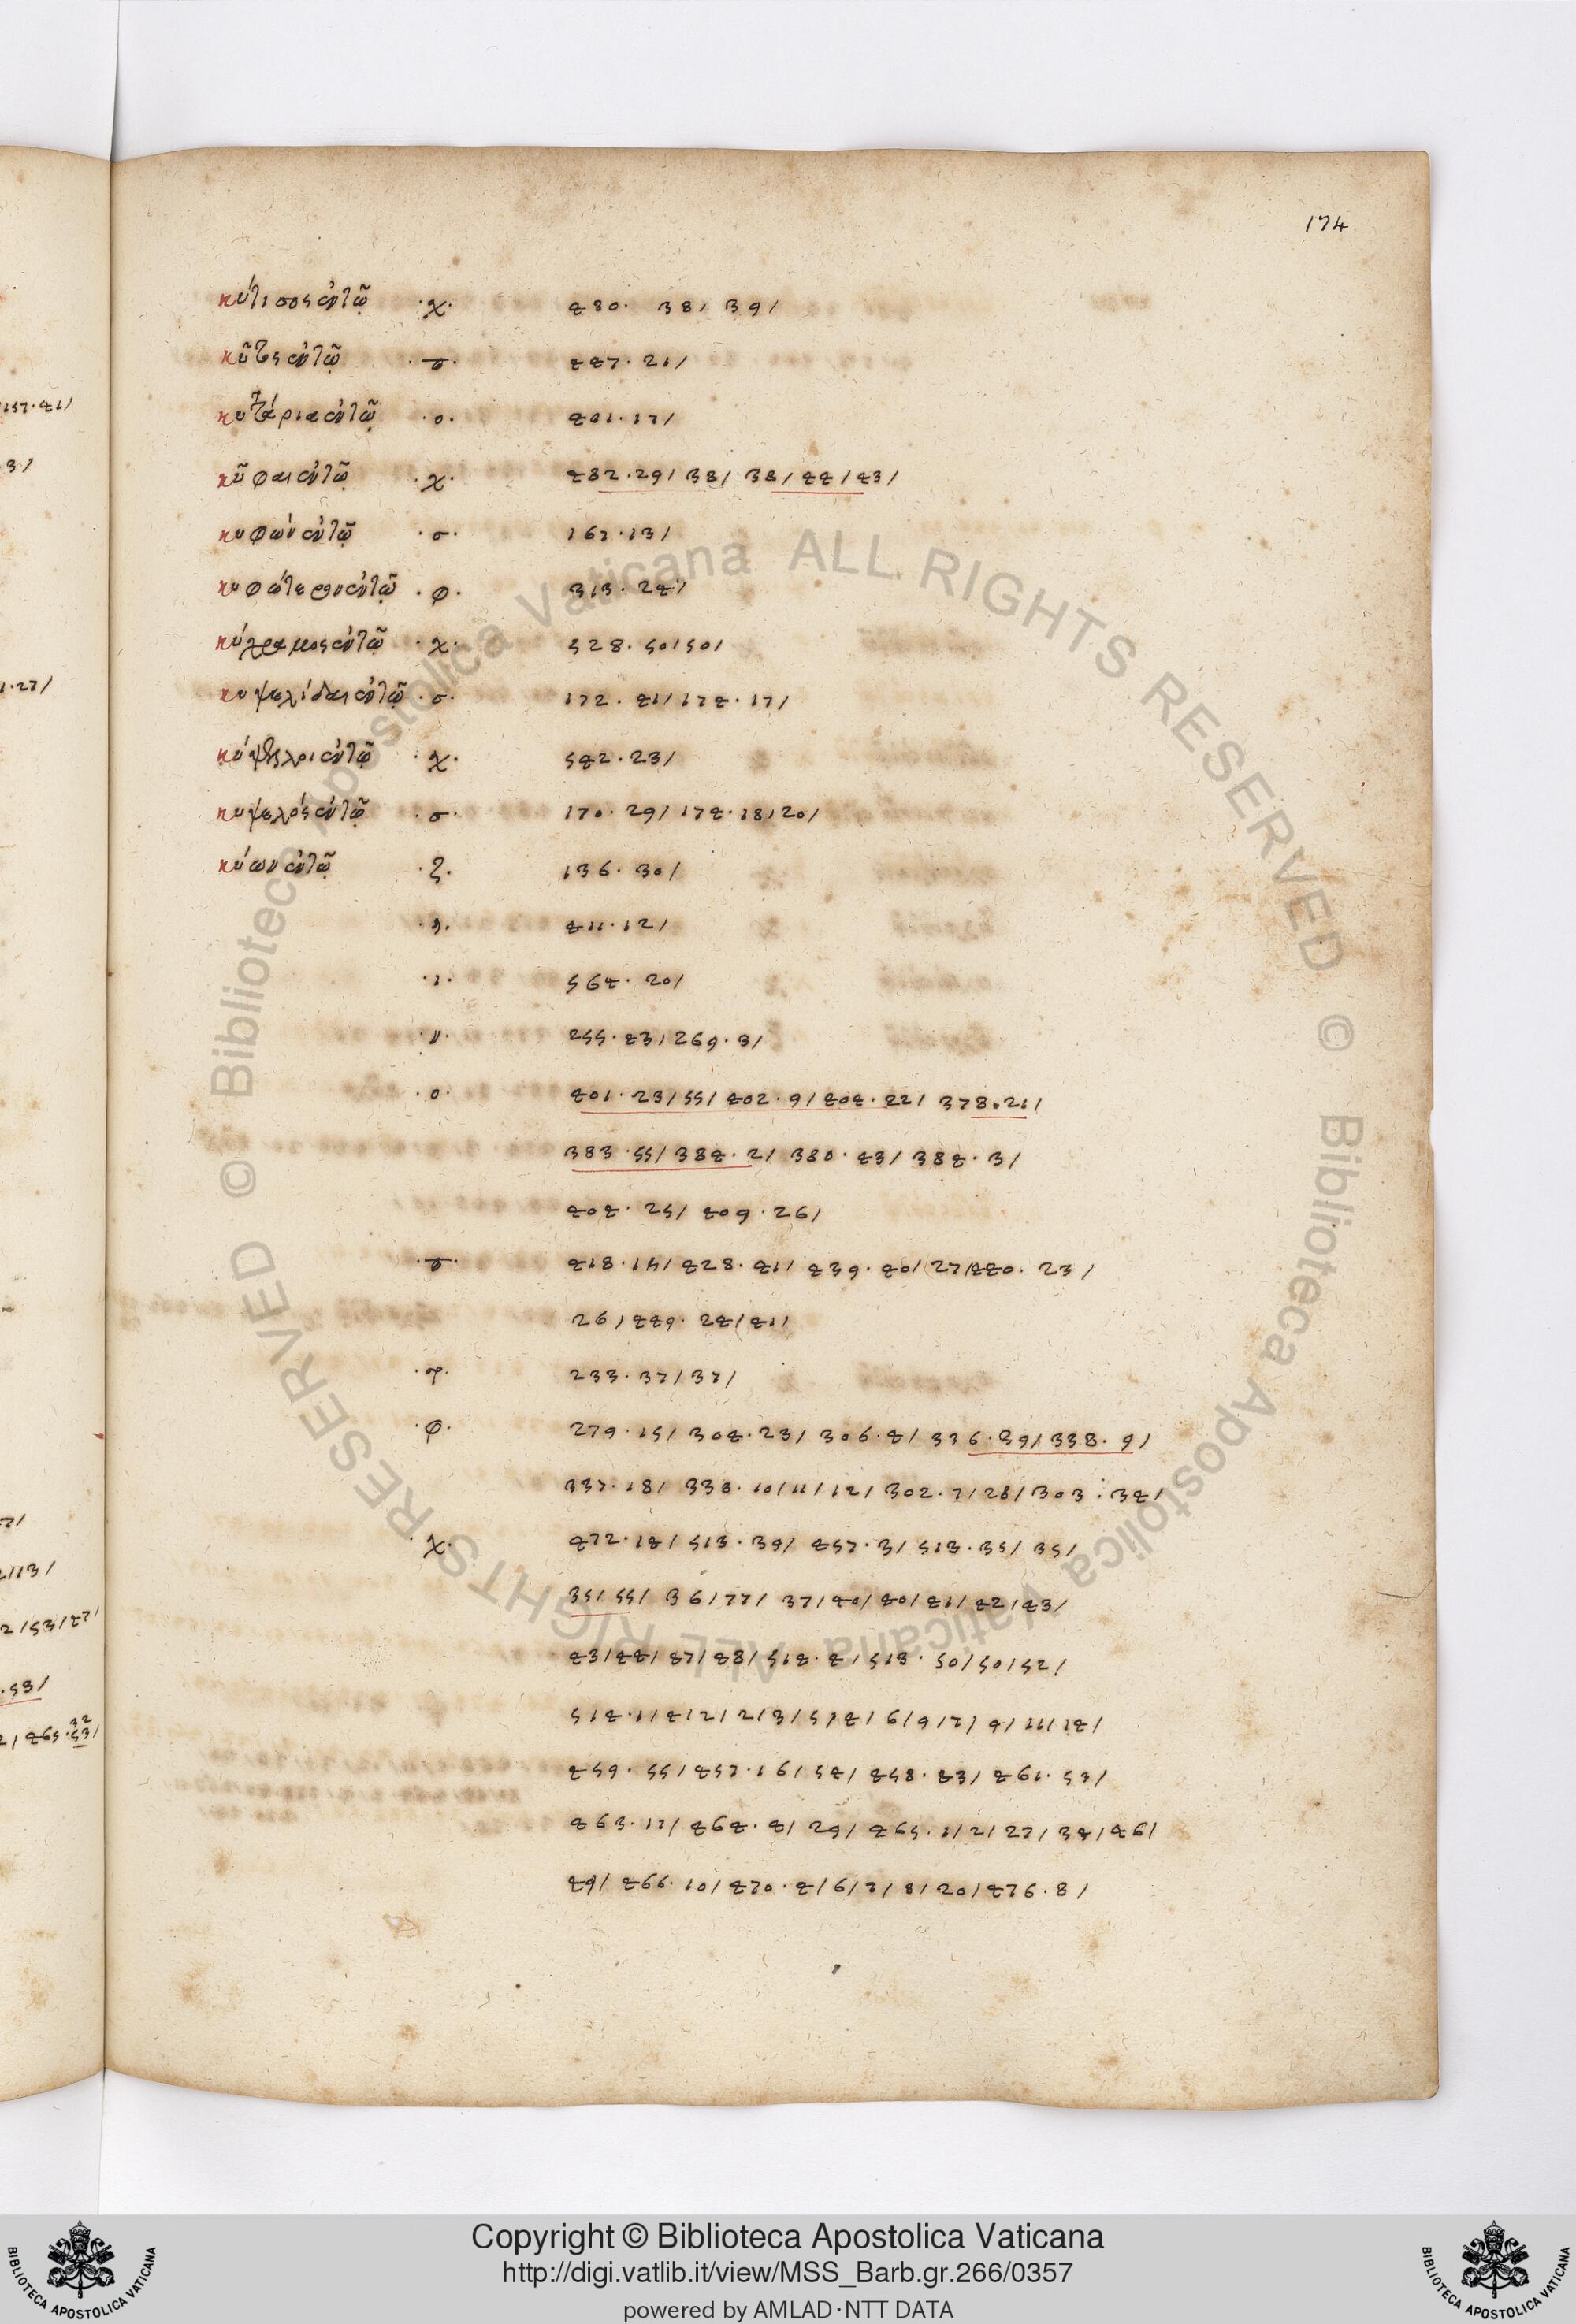 174
κύτισος ἐν τῷ ·χ· 480· 38/ 39/
κῦτος ἐν τῷ ·π· 447· 21/
κυττάρια ἐν τῷ ·ο· 401·17/
κῦφαι ἐν τῷ ·χ· 482·29/ 38/ 38/ 44/43/
κυφών ἐν τῷ ·σ· 167·13/
κυφώτερον ἐν τῷ ·φ· 313·24/
κύχραμος ἐν τῷ ·χ· 528·50/50/
κυψελίδαι ἐν τῷ ·σ· 172·41/174·17/
ἐν τῷ ·χ· 542·23/
κυψελός ἐν τῷ ·σ· 170·29/174·18/20/
κύων ἐν τῷ ·ζ· 136·30/
411·12/
·ι· 564·20/
·ν· 255·43/269·3/
·ο· 401·23/55/402·9/404·22/ 378·21/
383·55/384·2/ 380·43/384·3/
404·25/ 409·26/
·π· 418·15/428·41/ 439·40/27/440· 23/
26/449· 24/41/
233·37/37/
·φ· 279·15/304·23/306·4/ 336·39/338· 9/
337·18/ 338·10/11/12/302·7/28/303·34/
·χ· 472·14/513·39/ 457·3/ 513·35/ 35/
35/55/ 36/77/ 37/40/40/41/42/43/
43/44/47/48/514·4/513· 50/50/52/
514·1/4/2/2/3/5/4/6/9/7/9/11/14/
459·55/457·16/54/458·43/461·53/
463·17/464·4/29/465·1/2/27/34/46/
49/466·10/470·4/6/7/8/20/476·8/
Copyright © Biblioteca Apostolica Vaticana
http://digi.vatlib.it/view/MSS_Barb.gr.266/0357
powered by AMLAD·NTT DATA